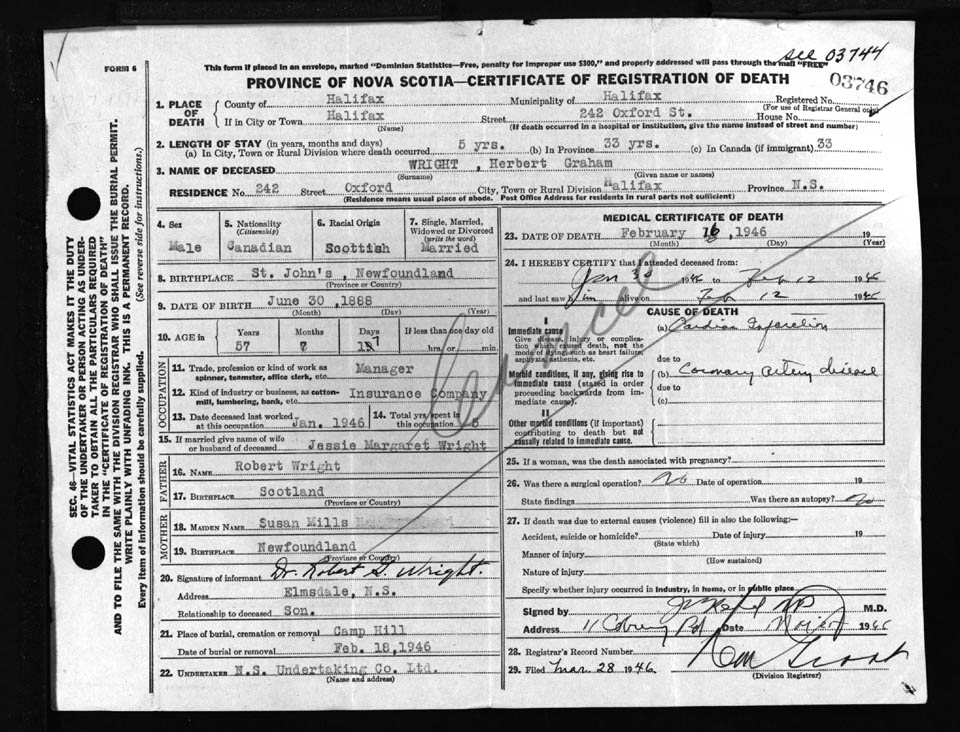 see 03744
FORM 6
This form if placed in an envelope, marked "Dominion Statistics—Free, penalty for improper use $300," and properly addressed will pass through the mail "FREE"
PROVINCE OF NOVA SCOTIA—CERTIFICATE OF REGISTRATION OF DEATH
03746
1. PLACE OF DEATH
County of Halifax Municipality of Halifax Registered No.
(For use of Registrar General only)
If in City or Town Halifax Street 242 Oxford St. House No.
(Name) (If death occurred in a hospital or institution, give the name instead of street and number)
2. LENGTH OF STAY (in years, months and days)
(a) In City, Town or Rural Division where death occurred 5 yrs. (b) In Province 33 yrs. (c) In Canada (if immigrant) 33
3. NAME OF DECEASED WRIGHT, Herbert Graham
(Surname) (Given name or names)
RESIDENCE No. 242 Street Oxford City, Town or Rural Division Halifax Province N.S.
(Residence means usual place of abode. Post Office Address for residents in rural parts not sufficient)
4. Sex
Male
5. Nationality
(Citizenship)
Canadian
6. Racial Origin
Scottish
7. Single, Married, Widowed or Divorced
(write the word)
Married
8. BIRTHPLACE St. John's, Newfoundland
(Province or Country)
9. DATE OF BIRTH June 30, 1888
(Month) (Day) (Year)
10. AGE in
Years Months Days If less than one day old
57 7 hrs. or min.
OCCUPATION
11. Trade, profession or kind of work as spinner, teamster, office clerk, etc. Manager
12. Kind of industry or business, as cotton-mill, lumbering, bank, etc. Insurance Company
13. Date deceased last worked at this occupation Jan. 1946
14. Total yrs. spent in this occupation
15. If married give name of wife or husband of deceased Jessie Margaret Wright
FATHER
16. NAME Robert Wright
17. BIRTHPLACE Scotland
(Province or Country)
MOTHER
18. MAIDEN NAME Susan Mills
19. BIRTHPLACE Newfoundland
(Province or Country)
20. Signature of informant Dr. Robert G. Wright.
Address Elmsdale, N.S.
Relationship to deceased Son.
21. Place of burial, cremation or removal Camp Hill
Date of burial or removal Feb. 18, 1946
22. UNDERTAKER N.S. Undertaking Co. Ltd.
(Name and address)
MEDICAL CERTIFICATE OF DEATH
23. DATE OF DEATH February 16, 1946 19
(Month) (Day) (Year)
24. I HEREBY CERTIFY that I attended deceased from:
Jan 30 1946 to Feb 12 1946
and last saw him alive on Feb 12 1946
CAUSE OF DEATH
I
Immediate cause
Give disease, injury or complication which caused death, not the mode of dying, such as heart failure, asphyxia, asthenia, etc.
(a) Cardiac Infarction
due to
Morbid conditions, if any, giving rise to immediate cause (stated in order proceeding backwards from immediate cause).
(b) Coronary artery disease
due to
(c)
II
Other morbid conditions (if important) contributing to death but not causally related to immediate cause.
Cancel
25. If a woman, was the death associated with pregnancy?
26. Was there a surgical operation? no Date of operation 19
State findings Was there an autopsy? no
27. If death was due to external causes (violence) fill in also the following:—
Accident, suicide or homicide? Date of injury 19
(State which)
Manner of injury
(How sustained)
Nature of injury
Specify whether injury occurred in industry, in home, or in public place
Signed by M.D.
Address 11 Coburg Rd Date 1946
28. Registrar's Record Number
29. Filed Mar 28 1946
(Division Registrar)
SEC. 46—VITAL STATISTICS ACT MAKES IT THE DUTY
OF THE UNDERTAKER OR PERSON ACTING AS UNDER-
TAKER TO OBTAIN ALL THE PARTICULARS REQUIRED
IN THE "CERTIFICATE OF REGISTRATION OF DEATH"
AND TO FILE THE SAME WITH THE DIVISION REGISTRAR WHO SHALL ISSUE THE BURIAL PERMIT.
WRITE PLAINLY WITH UNFADING INK. THIS IS A PERMANENT RECORD.
Every item of Information should be carefully supplied. (See reverse side for instructions.)